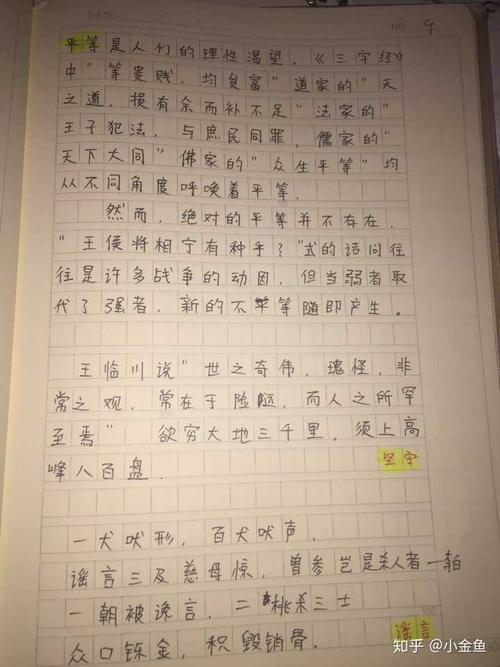 DATE
NO 9
平等是人们的理性渴望，《三字经》
中"等贵贱，均贫富"道家的"天
之道，损有余而补不足"法家的"
王子犯法，与庶民同罪，儒家的"
天下大同"佛家的"众生平等"均
从不同角度呼唤着平等。
然而，绝对的平等并不存在，
"王侯将相宁有种乎？"式的诘问往
往是许多战争的动因，但当弱者取
代了强者，新的不平等随即产生。
王临川说"世之奇伟，瑰怪，非
常之观，常在于险远，而人之所罕
至焉"欲穷大地三千里，须上高
峰八百盘。
坚守
一犬吠形，百犬吠声，
谣言三及慈母惊，曾参岂是杀人者
一朝被谗言，二桃杀三士
众口铄金，积毁销骨。
谣言
知乎 @小金鱼